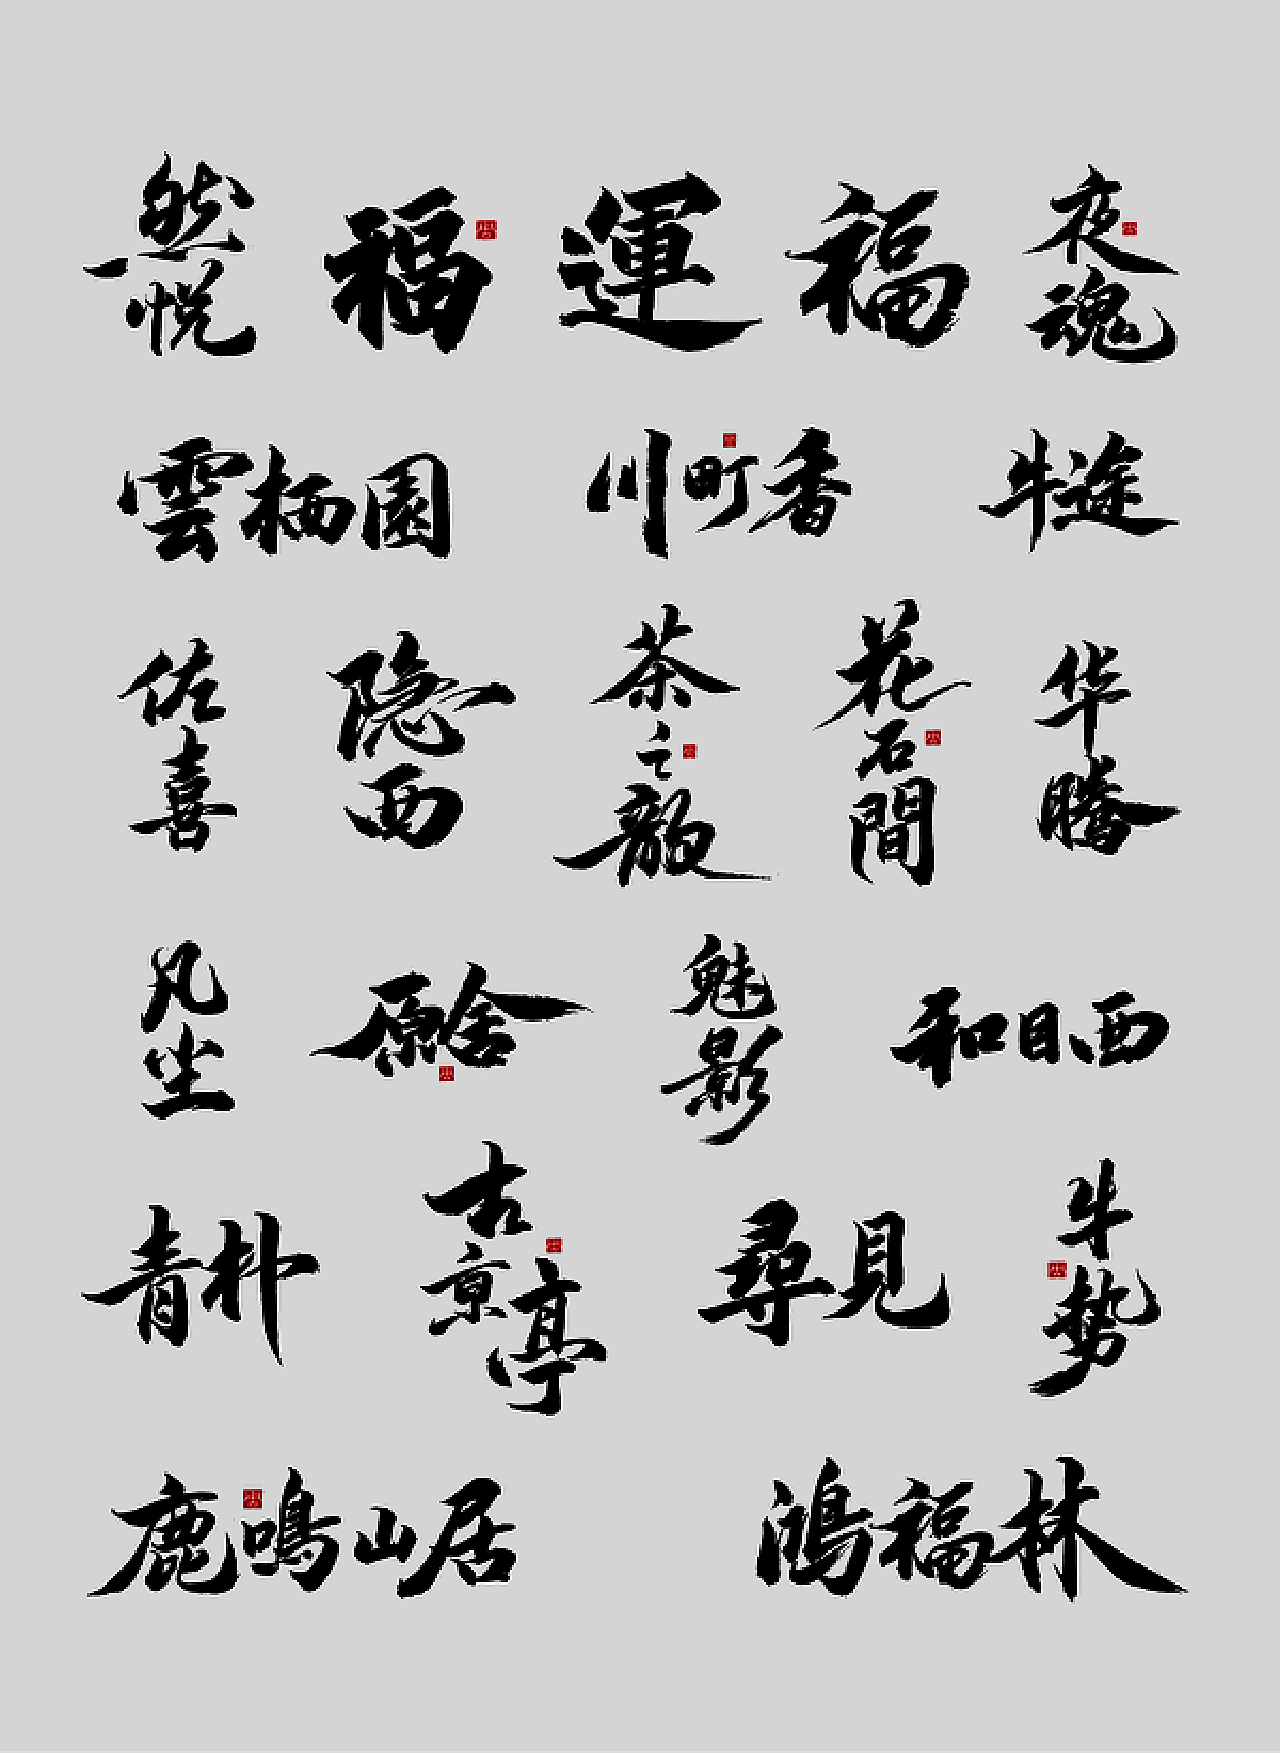 然悦
福
運
福
夜魂
雲栖園
川町香
牛途
佐喜
隐西
茶之韻
花石間
华腾
凡尘
原舍
魅影
和目西
青朴
古京亭
尋見
牛势
鹿鳴山居
鴻福林